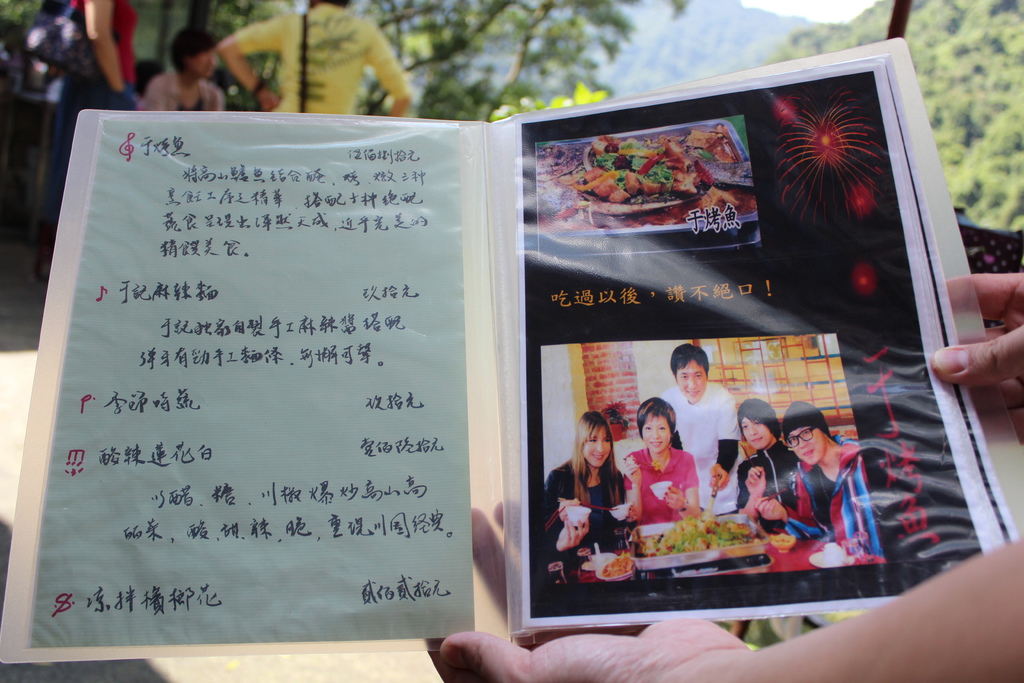 于烤魚 伍佰捌拾元
將高山鱸魚結合醃、烤、燉三種
烹飪工序之精華，搭配十種绝配
蔬食呈現出渾然天成，近乎完美的
精饌美食。
于記麻辣麵 玖拾元
于記独家自製手工麻辣醬搭配
彈牙有勁手工麵條，
季節時蔬 玖拾元
酸辣蓮花白 壹佰陸拾元
以醋、糖、川椒爆炒高山高
麗菜，酸、甜、辣、脆，重現川國经典。
凉拌檳榔花 貳佰貳拾元
于烤魚
吃過以後，讚不絕口！
于烤魚